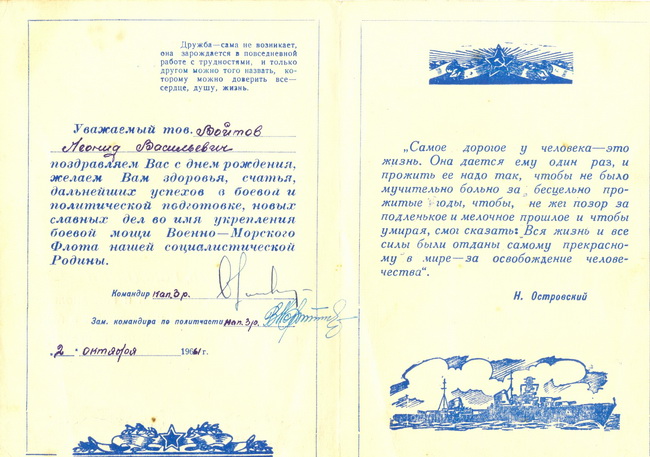 Дружба—сама не возникает,
она зарождается в повседневной
работе с трудностями, и только
другом можно того назвать, ко-
торому можно доверить все—
сердце, душу, жизнь.
Уважаемый тов. Войтов
Леонид Васильевич
поздравляем Вас с днем рождения,
желаем Вам здоровья, счатья,
дальнейших успехов в боевой и
политической подготовке, новых
славных дел во имя укрепления
боевой мощи Военно—Морского
Флота нашей социалистической
Родины.
Командир кап. 3 р.
Зам. командира по политчасти кап. 3 р.
„2" октября 1961 г.
„Самое дорогое у человека—это
жизнь. Она дается ему один раз, и
прожить ее надо так, чтобы не было
мучительно больно за бесцельно про-
житые годы, чтобы, не жег позор за
подленькое и мелочное прошлое и чтобы
умирая, смог сказать: Вся жизнь и все
силы были отданы самому прекрасно-
му в мире—за освобождение челове-
чества".
Н. Островский